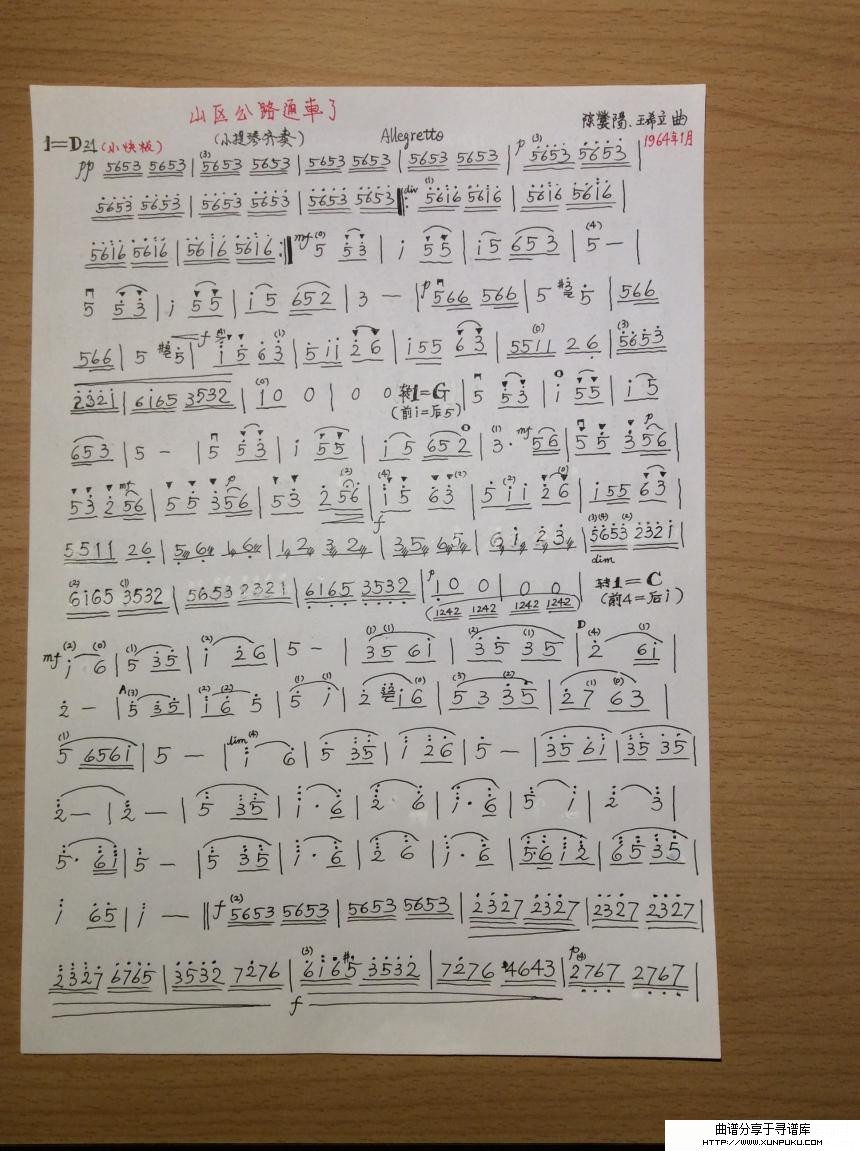 山区公路通車了
1=D 2/4 (小快板) (小提琴齐奏) Allegretto 王希立曲
1964年1月
pp 5653 5653 | (3) 5653 5653 | 5653 5653 | 5653 5653 | p (3) 5653 5653 |
5653 5653 | 5653 5653 | 5653 5653 div ‖: (1) 5616 5616 | 5616 5616 |
5616 5616 | 5616 5616 :‖ mf (0) 5 53 | i 55 | i5 653 | (4) 5 — |
5 53 | i 55 | i5 652 | 3 — | p 566 566 | 5 5 | 566
566 | 5 5 | f i5 63 (1) | 5ii 26 | i55 63 | 5511 (0) 26 | (3) 5653
2321 | 6165 3532 | (0) 10 0 | 0 0 转1=G (前i=后5) | 5 53 | i 55 | i5
653 | 5 — | 5 53 | i 55 | i5 652 | (1) 3· mf 56 | 55 356 p |
53 256 mf | 55 356 p | 53 256 (2) | (4) f i5 63 (2) | 5ii (2) 26 (0) | i55 63 |
5511 26 | 56 16 | 12 32 | 35 65 | 6i 23 | (3) (4) 5653 (2) 2321 dim
(2) 6165 (1) 3532 | 5653 2321 | 6165 3532 | p 10 0 | 0 0 | 转1=C (前4=后i)
(1242 1242 1242 1242)
mf (2) i (0) 6 | (1) 5 35 | (2) i 26 | 5 — | (1) (1) 35 6i | (2) 35 (1) 35 | D (4) 2 (1) 6i |
2 — | A (3) 5 35 | (2) i (2) 6 5 | (1) 5 (1) i | 2 i6 (0) | (3) 53 (2) 35 | 27 (1) (0) 63 |
(1) 5 656i | 5 — | dim (4) i 6 | 5 35 | i 26 | 5 — | 35 6i | 35 35 |
2 — | 2 — | 5 35 | i· 6 | 2 6 | i· 6 | 5 i | 2 3 |
5· 6i | 5 — | 5 35 | i· 6 | 2 6 | i· 6 | 5·6 i2 | 65 35 |
i 65 | i — ‖ f (2) 5653 5653 | 5653 5653 | 2327 2327 | 2327 2327 |
2327 6765 | 3532 7276 | (3) f 6i6#5 3532 | 7276 4643 | p (4) 2767 2767 |
曲谱分享于寻谱库
HTTP://WWW.XUNPUKU.COM